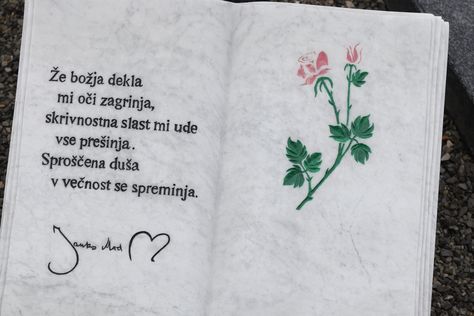 Že božja dekla
mi oči zagrinja,
skrivnostna slast mi ude
vse prešinja.
Sproščena duša
v večnost se spreminja.
Janko Mad